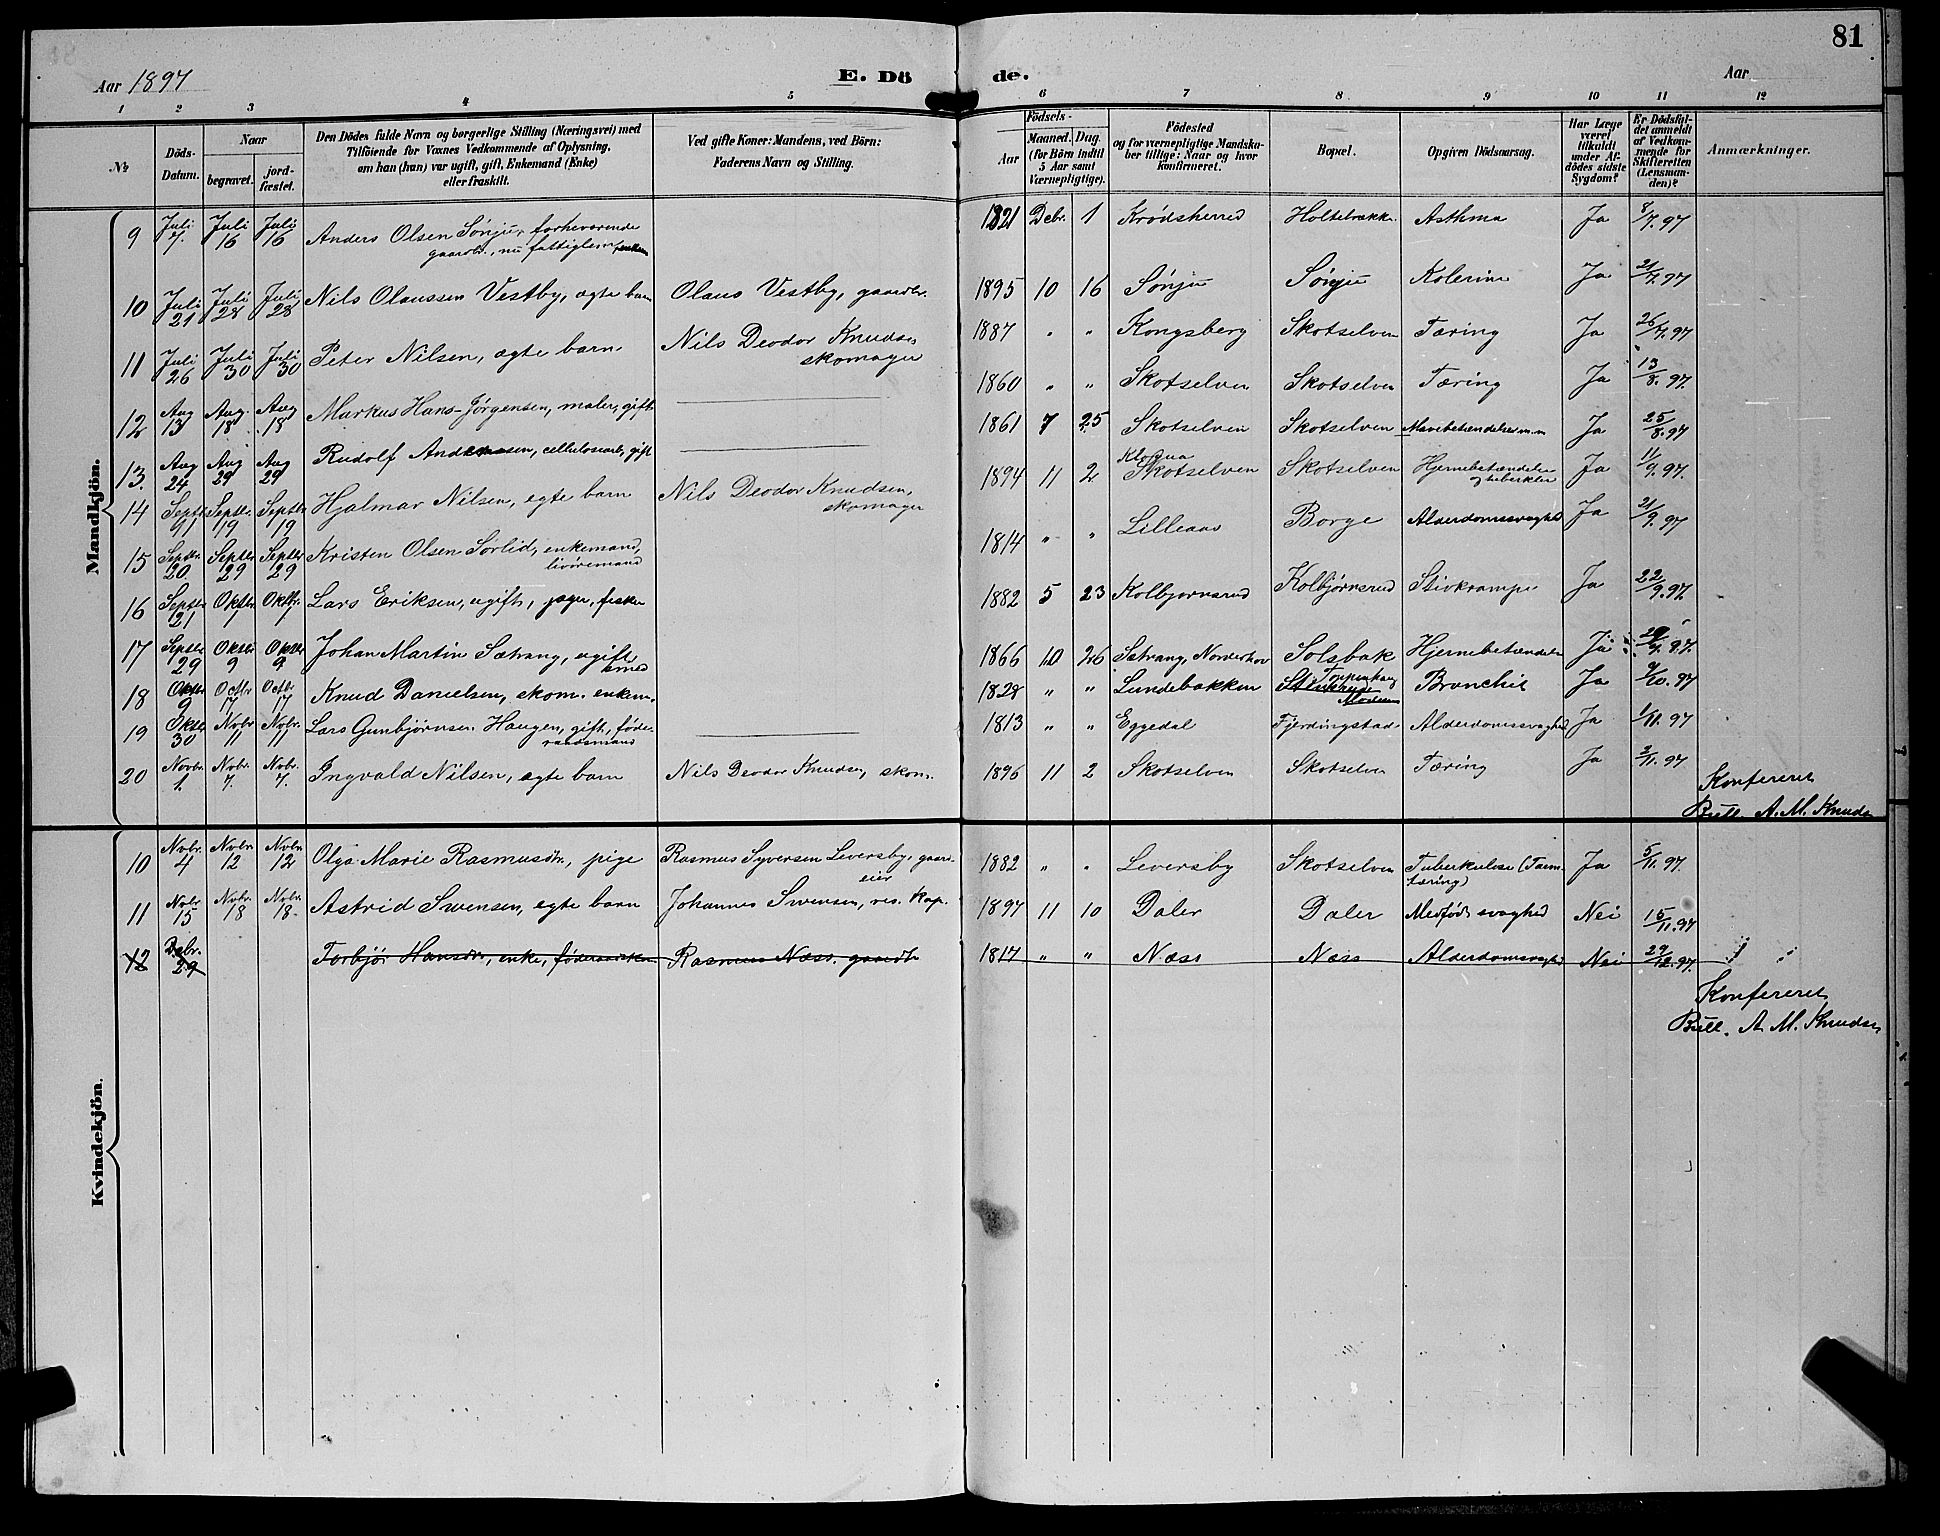 81
Aar 1897 E. Dö de. Aar
1 2 3 4 5 6 7 8 9 10 11 12
№
Döds-Datum.
Naar
begravet.
jord-fæstet.
Den Dödes fulde Navn og borgerlige Stilling (Næringsvei) med
Tilföiende for Voxnes Vedkommende af Oplysning,
om han (hun) var ugift, gift, Enkemand (Enke)
eller fraskilt.
Ved gifte Koner: Mandens, ved Börn:
Faderens Navn og Stilling.
Födsels-
Aar
Maaned. Dag.
(for Börn indtil
5 Aar samt
Værnepligtige).
Födested
og for værnepligtige Mandska-
ber tillige: Naar og hvor
konfirmeret.
Bopæl.
Opgiven Dödsaarsag.
Har Læge
været
tilkaldt
under Af-
dödes sidste
Sygdom?
Er Dödsfal-
det anmeldt
af Vedkom-
mende for
Skifteretten
(Lensman-
den)?
Anmærkninger.
Mandkjön.
9 Juli 7. Juli 16 Juli 16 Anders Olsen Sønju, forhenværende gaardbr., nu fattiglem, 1821 Decbr. 1 Krødsherred Holtebrække Asthma Ja 8/7.97
10 Juli 21 Juli 28 Juli 28 Nils Olaussen Vestby, ægte barn Olaus Vestby, gaardbr. 1895 10 16 Sønju Sønju Kolerine Ja 21/7.97
11 Juli 26 Juli 30 Juli 30 Peter Nilsen, ægte barn Nils Deodor Knudsen skomager 1887 " " Kongsberg Skotselven Tæring Ja 26/7.97
12 Aug 13 Aug. 18 Aug 18 Markus Hans-Jørgensen, maler, gift 1860 " " Skotselven Skotselven Tæring Ja 13/8.97.
13. Aug 24 Aug 29 Aug 29 Rudolf Andersen, cellulosearb, gift 1861 7 25 Skotselven Skotselven Mavebetændelse m.m Ja 25/8.97
14 Septbr 11 Septbr. 19 Septbr 19 Hjalmar Nilsen, ægte barn Nils Deodor Knudsen, skomager 1894 11 2 Skotselven Skotselven Hjernebetændelse og tuberkler Ja 11/9.97.
15 Septbr. 20 Septbr 29 Septbr 29 Kristen Olsen Sørlid, enkemand, livøremand 1814 " " Lilleaas Borge Alderdomssvaghed Ja 21/9.97
16 Septbr 21 Oktbr. 1 Oktbr. 1 Lars Eriksen, ugift, jæger, fisker 1882 5 23 Kolbjørnsrud Kolbjørnsrud Stivkrampe Ja 22/9.97.
17 Septbr 29 Oktbr 9 Oktbr 9 Johan Martin Sætrang, ugift, smed 1866 10 26 Sætrang, Norderhov Solsbak Hjernebetændelse Ja 29/9.97.
18 Oktbr 9 Octbr 17 Octbr 17 Knud Danielsen, skom. enkem. 1828 " " Lundebakken Toppenhaug Bronchit Ja 9/10.97
19 Oktbr 30 Novbr. 11 Novbr. 11 Lars Gunbjørnsen Haugen, gift, føde-raadsmand 1813 " " Eggedal Fjerdingstad Alderdomssvaghed Ja 1/11.97
20 Novbr. 1. Nvbr. 7. Nvbr. 7. Ingvald Nilsen, ægte barn Nils Deodor Knudsen, skom. 1896 11 2 Skotselven Skotselven Tæring Ja 2/11.97
Konfereret
Bull. A. M. Knudsen
Kvindekjön.
10 Nvbr. 4 Nvbr 12 Nvbr 12 Olga Marie Rasmusdtr., pige Rasmus Syversen Leversby, gaard-eier 1882 " " Leversby Skotselven Tuberkulose (Tarmtæring) Ja 5/11.97.
11 Nvbr. 15 Nvbr. 18 Nvbr. 18. Astrid Svensen, ægte barn Johannes Svensen, res. Kap. 1897 11 10 Daler Daler Medfødt svaghed Nei 15/11.97
12 Dcbr. 29 Torbjør Hansdtr., enke, føderaadsken Rasmus Næss, gaardbr 1817 " " Næss Næss Alderdomssvaghed Nei 29/12.97. " "
Konfereret
Bull. A. M. Knudsen